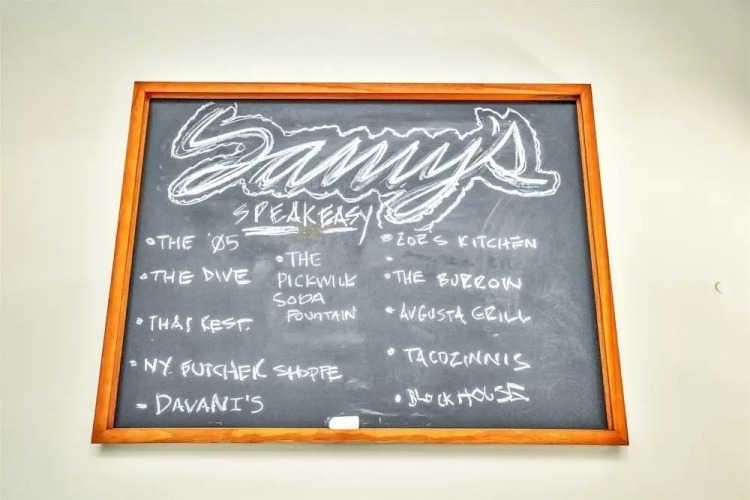 Sammy's
SPEAKEASY
• THE '05
• THE DIVE
• THAI REST.
• NY. BUTCHER SHOPPE
- DAVANI'S
• THE
PICKWICK
SODA
FOUNTAIN
• ZOE'S KITCHEN
•
• THE BURROW
• AUGUSTA GRILL
• TACOZINNIS
• BLOCKHOUSE